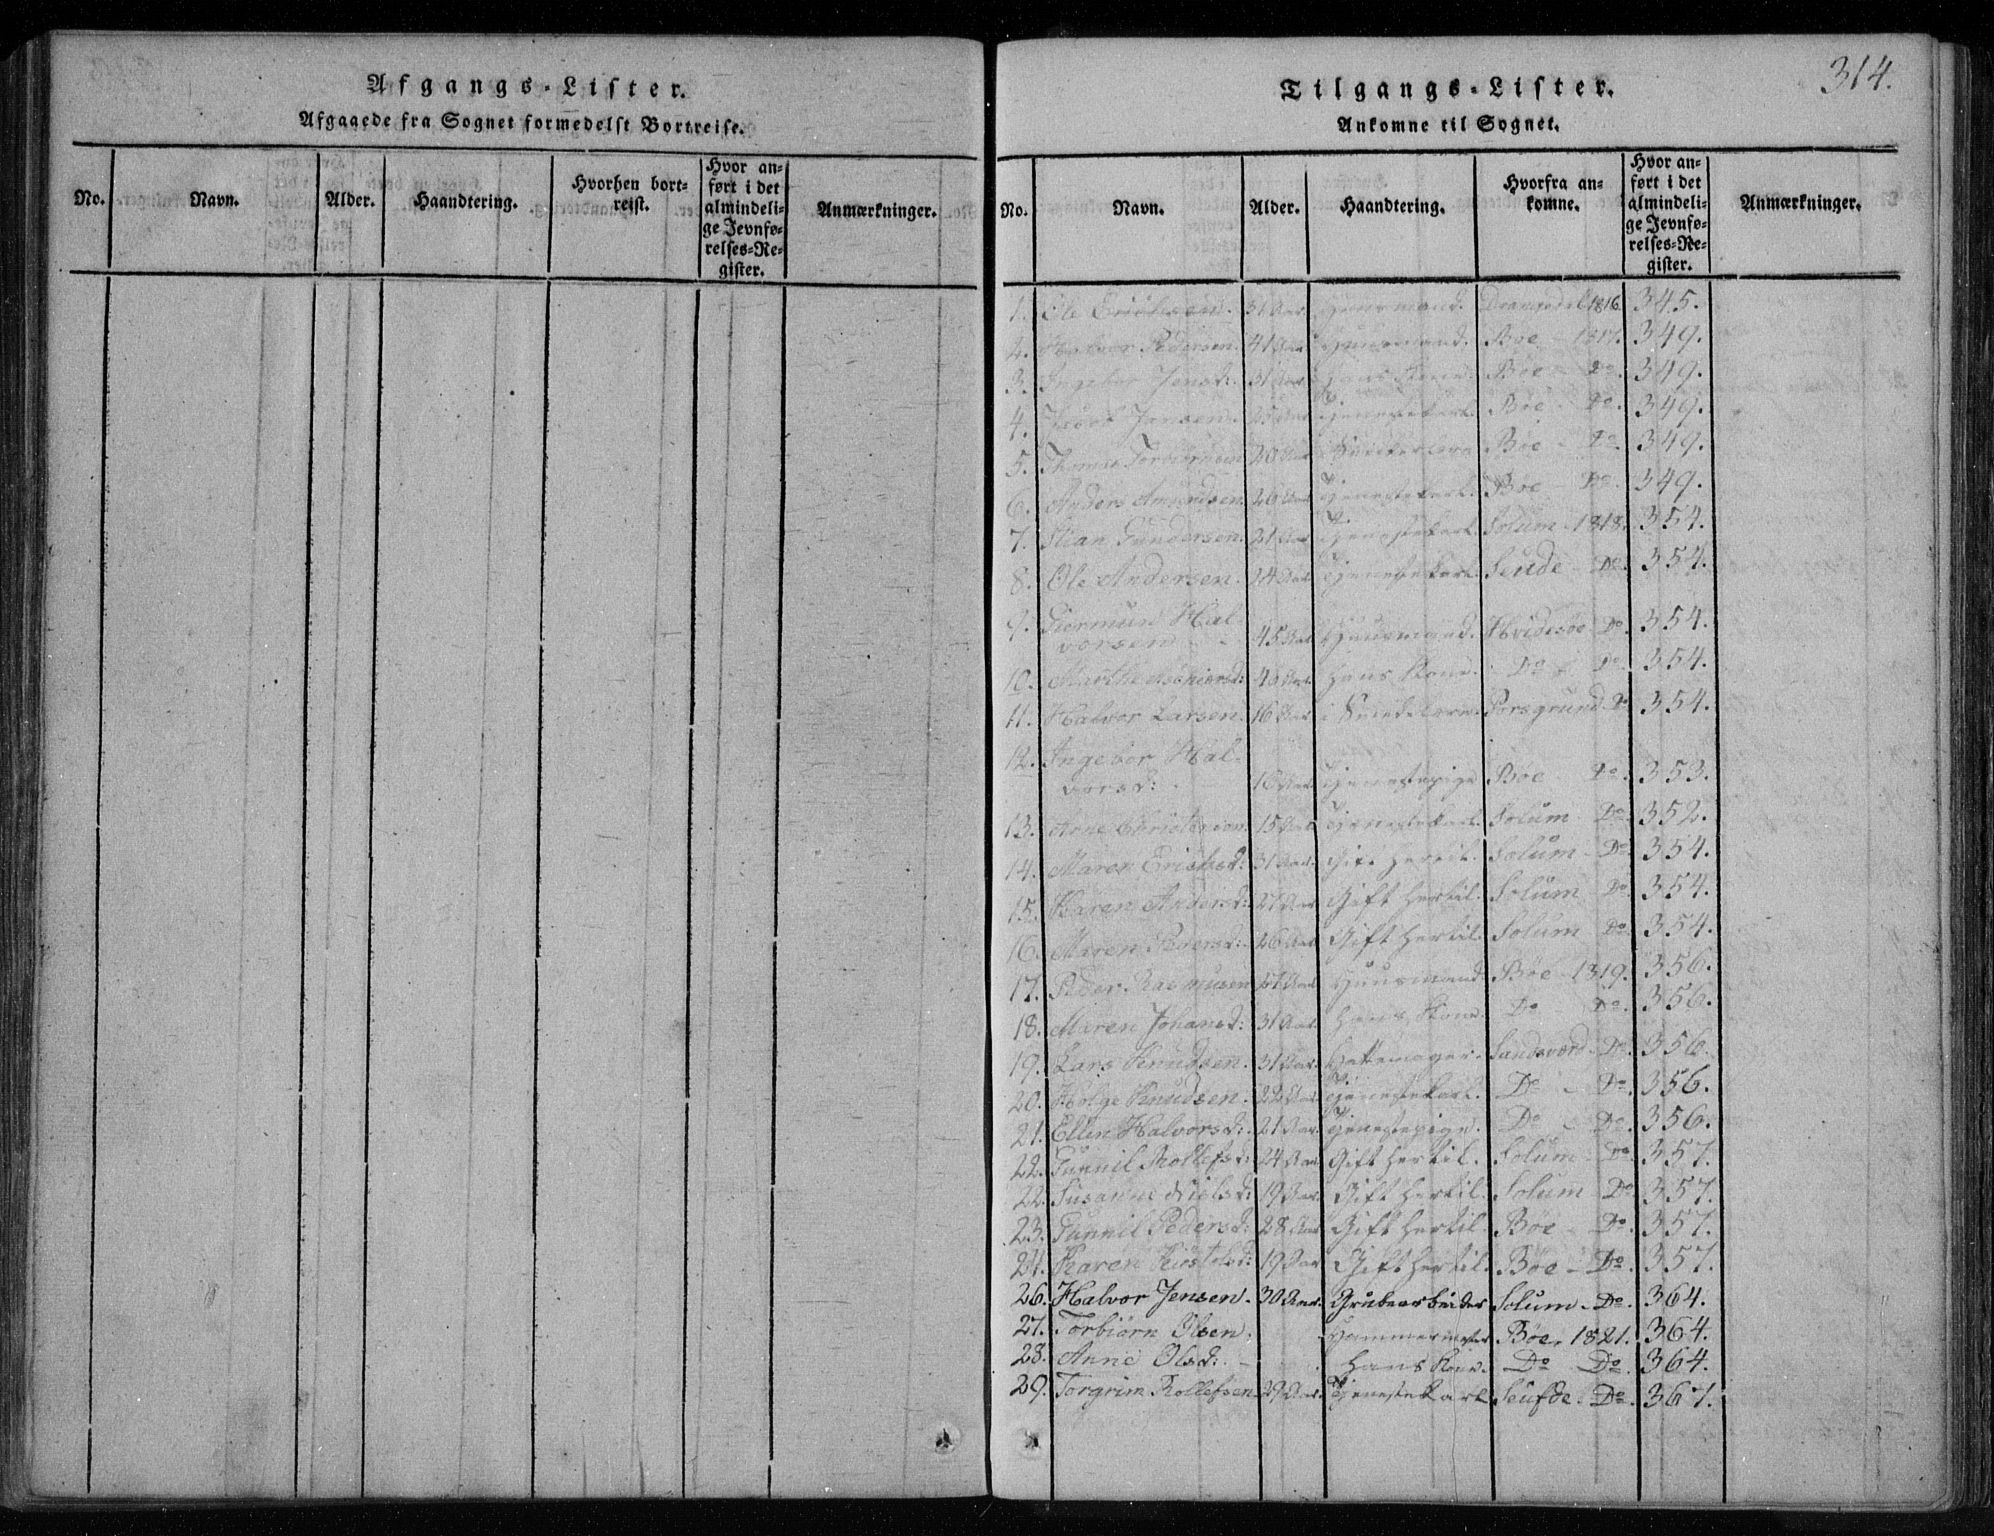 Afgangs-Lister.
Afgaaede fra Sognet formedelst Bortreise.
No. Navn. Alder. Haandtering. Hvorhen bortreist. Hvor anført i det almindelige Jevnførelses-Register. Anmærkninger.
314.
Tilgangs-Lister.
Ankomne til Sognet.
No. Navn. Alder. Haandtering. Hvorfra ankomne. Hvor anført i det almindelige Jevnførelses-Register. Anmærkninger.
1. Ole 31 Aar Huusmand. 1816. 345.
2. Halvor Pedersen. 41 Aar Huusmand. Bøe - 1817. 349.
3. Ingebor Jensd: 31 Aar hans Kone. Bøe - Do. 349.
4. Jensen. Tjenestekarl. Bøe - Do. 349.
5. 20 Aar Bøe - Do. 349.
6. Anders Amundsen 26 Aar Tjenestekarl. Bøe - Do. 349.
7. Stian Gundersen. 21 Aar Tjenestekarl. Solum - 1818. 354.
8. Ole Andersen. 34 Aar Tjenestekarl. Seude - Do. 354.
9. Giermun Hal-
vorsen 45 Aar Huusmand. Hvidesøe - Do. 354.
10. Marthe 40 Aar. hans Kone. Do - Do. 354.
11. Halvor Larsen. 16 Aar Porsgrund. Do 354.
12. Ingebor Hal-
vorsd: 16 Aar Tjenestepige Bøe - Do. 353.
13. Arne 15 Aar Tjenestekarl. Solum - Do. 352.
14. Maren Ericksd: 31 Aar. Gift hertil. Solum - Do. 354.
15. Karen Andersd: 27 Aar Gift hertil. Solum - Do 354.
16. Maren Pedersd: 26 Aar Gift hertil. Solum - Do. 354.
17. Peder Rasmusen 27 Aar Huusmand. Bøe - 1819. 356.
18. Maren Johansd: 31 Aar. hans Kone. Do - Do. 356.
19. Lars Knudsen. 31 Aar. Hattemager. Sandsværd - Do. 356.
20. Holge Knudsen. 22 Aar. Tjenestekarl. Do - Do. 356.
21. Ellen Halvorsd: 21 Aar. Tjenestepige. Do - Do. 356.
22. Gunnil Rollefsd: 24 Aar Gift hertil. Solum - Do 357.
22. Susanne Nielsd: 19 Aar. Gift hertil. Solum - Do. 357.
23. Gunnil Pedersd: 28 Aar Gift hertil. Bøe - Do. 357.
24. Karen 19 Aar Gift hertil. Bøe - Do. 357.
26. Halvor Jensen. 30 Aar. Grubearbeider Solum - Do. 364.
27. Torbiørn Olsen. Hammermester Bøe, 1821. 364.
28. Anne Olsd: - hans Kone. Do Do 364.
29. Torgrim Rollefsen 29 Aar. Tjenestekarl Seufde. Do. 367.